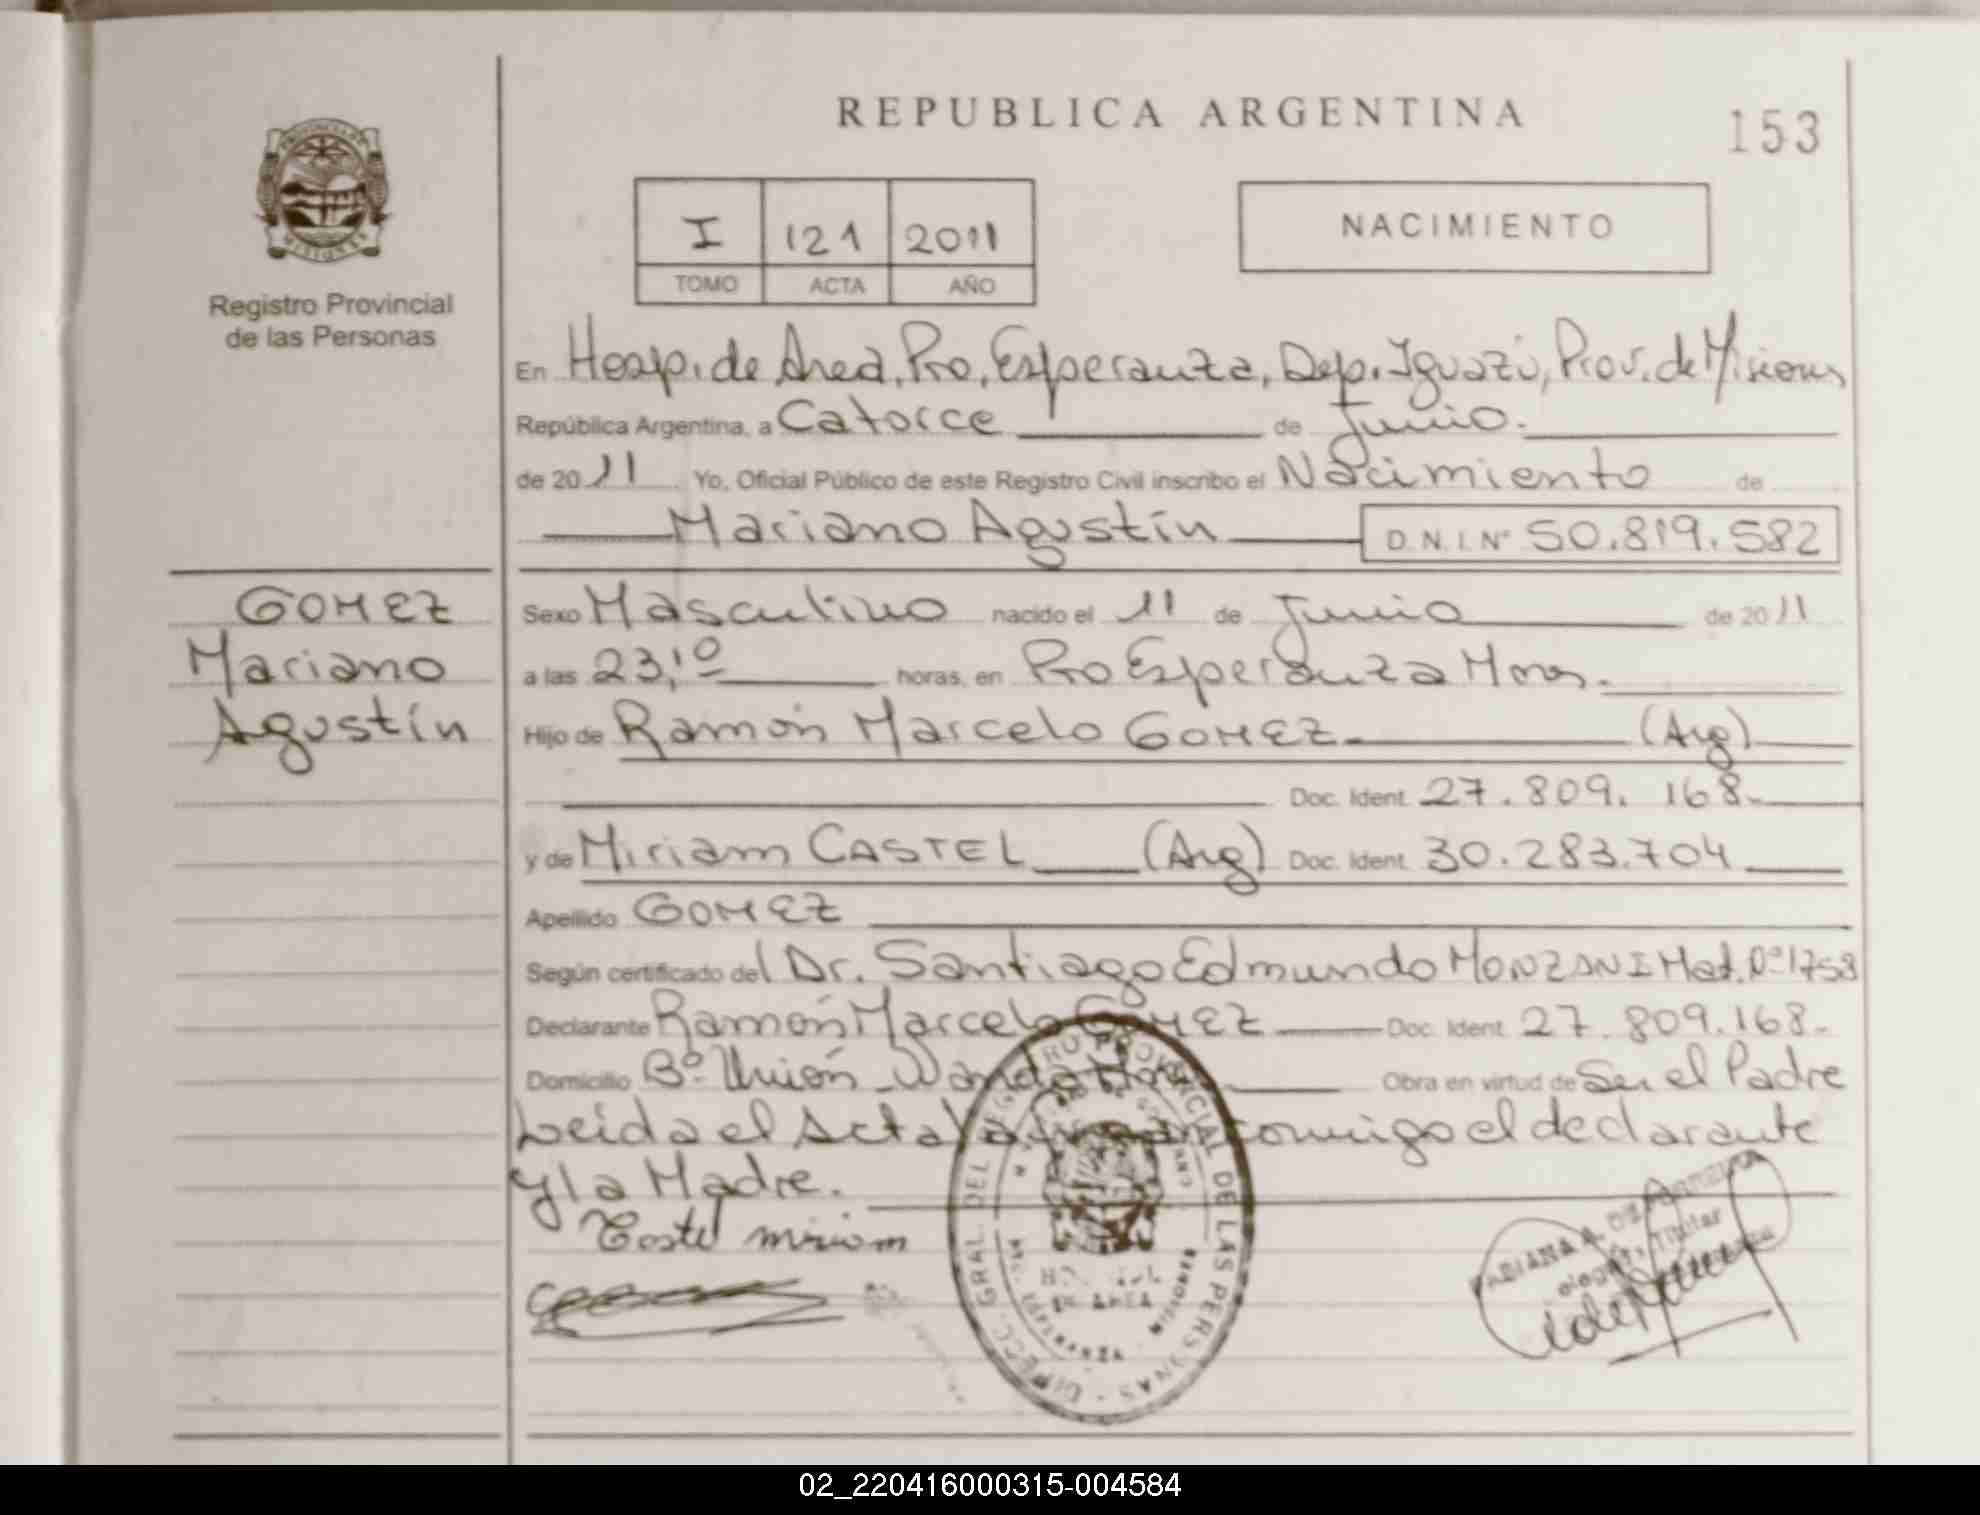 REPUBLICA ARGENTINA
153
PROVINCIA DE MISIONES
Registro Provincial
de las Personas
I 121 2011
TOMO ACTA AÑO
NACIMIENTO
En Hosp. de Area, Pto. Esperanza, Dep. Iguazú, Prov. de Misiones
República Argentina, a Catorce de Junio.
de 2011 Yo, Oficial Público de este Registro Civil inscribo el Nacimiento de
Mariano Agustín D.N.I. Nº 50.819.582
GOMEZ
Mariano
Agustín
Sexo Masculino nacido el 11 de Junio de 2011
a las 23,10 horas, en Pto Esperanza Mnes.
Hijo de Ramón Marcelo GOMEZ.- (Arg)
Doc. Ident. 27.809.168.-
y de Miriam CASTEL (Arg) Doc. Ident. 30.283.704
Apellido GOMEZ
Según certificado del Dr. Santiago Edmundo MONZANI Mat. Nº 1758
Declarante Ramón Marcelo GOMEZ Doc. Ident. 27.809.168.-
Domicilio Bº Unión - Wanda Obra en virtud de Ser el Padre
Leída el Acta la firman conmigo el declarante
y la Madre.
Castel miriam
DIREC. GRAL. DEL REGISTRO PROVINCIAL DE LAS PERSONAS
HOSPITAL
DE AREA
FABIANA A.
Titular
02_220416000315-004584